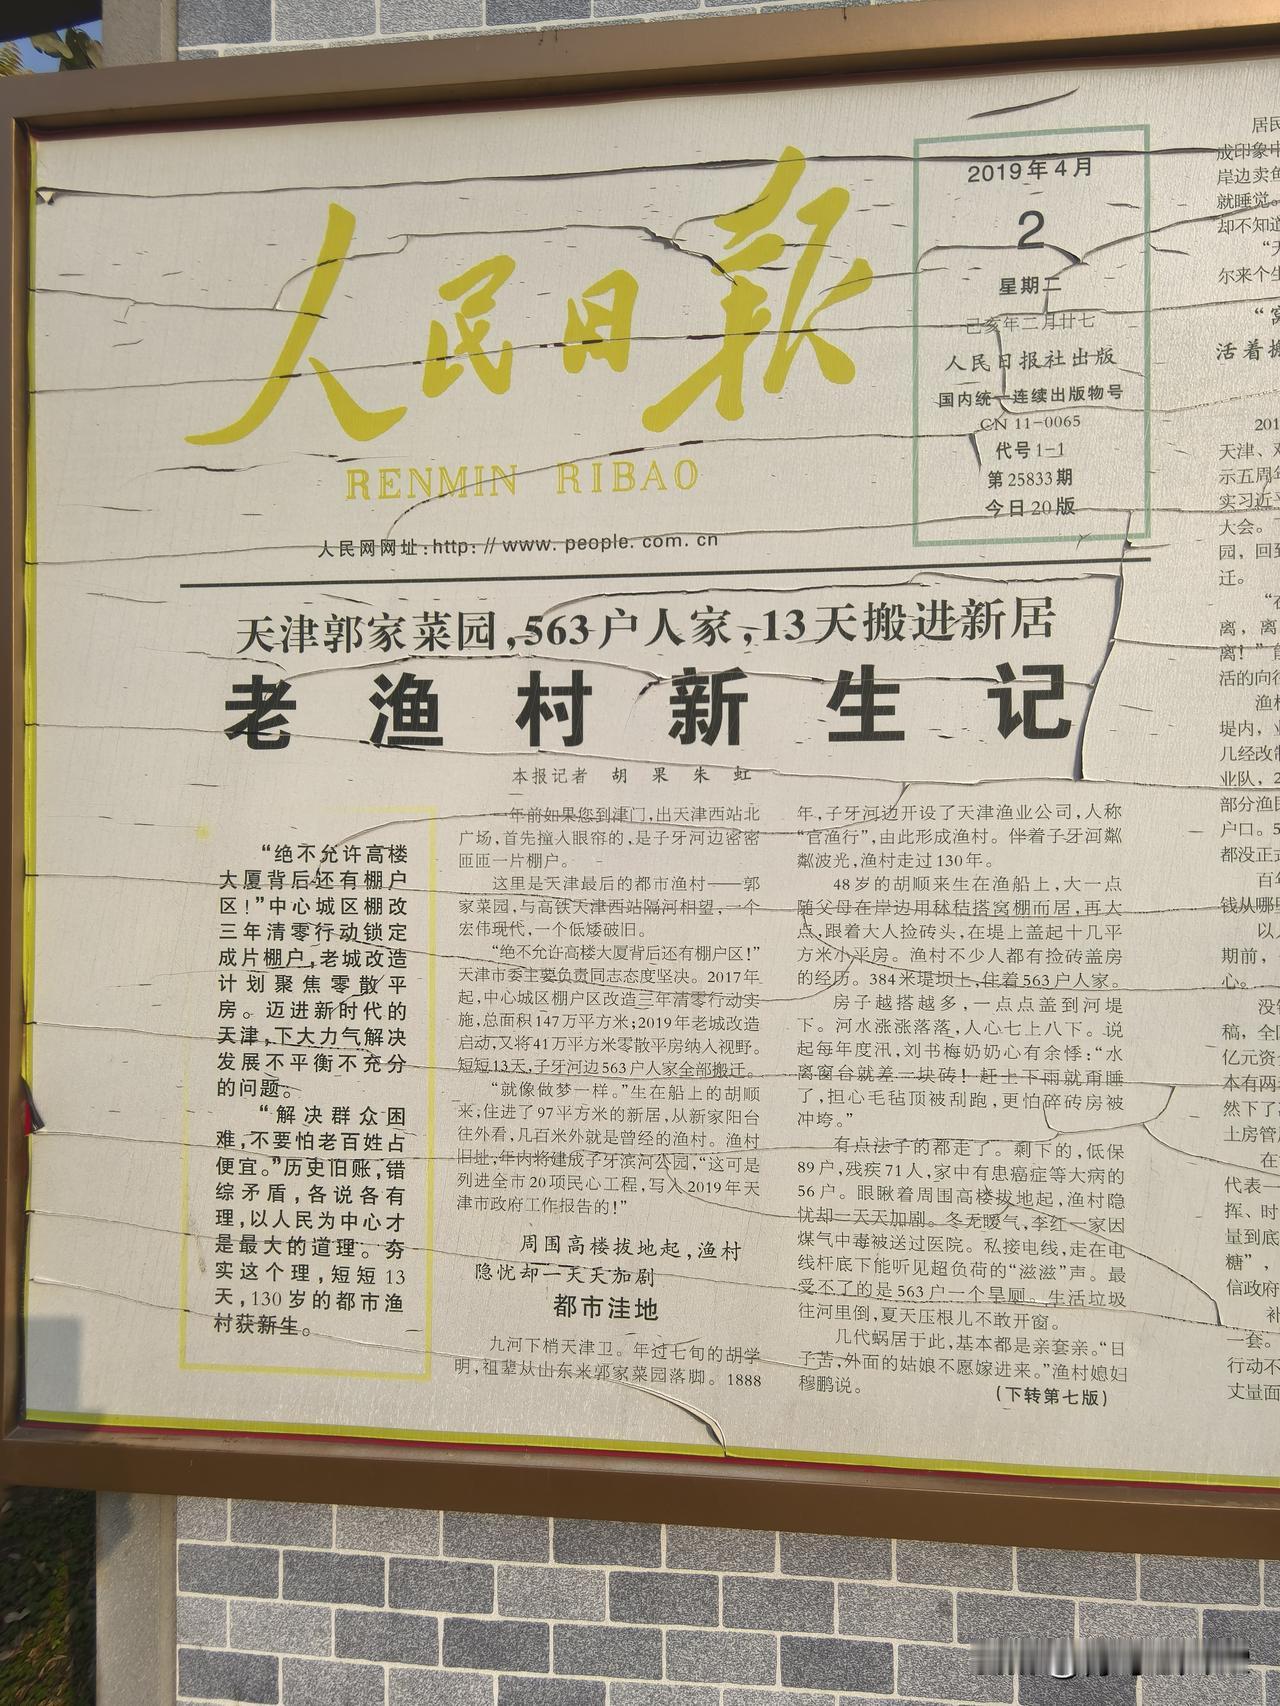 人民日报
RENMIN RIBAO
人民网网址:http://www.people.com.cn
2019年4月
2
星期二
己亥年二月廿七
人民日报社出版
国内统一连续出版物号
CN 11-0065
代号1-1
第25833期
今日20版
天津郭家菜园,563户人家,13天搬进新居
老渔村新生记
本报记者 胡 果 朱 虹
“绝不允许高楼
大厦背后还有棚户
区!”中心城区棚改
三年清零行动锁定
成片棚户,老城改造
计划聚焦零散平
房。迈进新时代的
天津,下大力气解决
发展不平衡不充分
的问题。
“解决群众困
难,不要怕老百姓占
便宜。”历史旧账,错
综矛盾,各说各有
理,以人民为中心才
是最大的道理。夯
实这个理,短短13
天,130岁的都市渔
村获新生。
一年前如果您到津门,出天津西站北
广场,首先撞入眼帘的,是子牙河边密密
匝匝一片棚户。
这里是天津最后的都市渔村——郭
家菜园,与高铁天津西站隔河相望,一个
宏伟现代,一个低矮破旧。
“绝不允许高楼大厦背后还有棚户区!”
天津市委主要负责同志态度坚决。2017年
起,中心城区棚户区改造三年清零行动实
施,总面积147万平方米;2019年老城改造
启动,又将41万平方米零散平房纳入视野。
短短13天,子牙河边563户人家全部搬迁。
“就像做梦一样。”生在船上的胡顺
来,住进了97平方米的新居,从新家阳台
往外看,几百米外就是曾经的渔村。渔村
旧址,年内将建成子牙滨河公园,“这可是
列进全市20项民心工程,写入2019年天
津市政府工作报告的!”
周围高楼拔地起,渔村
隐忧却一天天加剧
都市洼地
九河下梢天津卫。年过七旬的胡学
明,祖辈从山东来郭家菜园落脚。1888
年,子牙河边开设了天津渔业公司,人称
“官渔行”,由此形成渔村。伴着子牙河粼
粼波光,渔村走过130年。
48岁的胡顺来生在渔船上,大一点
随父母在岸边用秫秸搭窝棚而居,再大
点,跟着大人捡砖头,在堤上盖起十几平
方米小平房。渔村不少人都有捡砖盖房
的经历。384米堤坝上,住着563户人家。
房子越搭越多,一点点盖到河堤
下。河水涨涨落落,人心七上八下。说
起每年度汛,刘书梅奶奶心有余悸:“水
离窗台就差一块砖!赶上下雨就甭睡
了,担心毛毡顶被刮跑,更怕碎砖房被
冲垮。”
有点法子的都走了。剩下的,低保
89户,残疾71人,家中有患癌症等大病的
56户。眼瞅着周围高楼拔地起,渔村隐
忧却一天天加剧。冬无暖气,李红一家因
煤气中毒被送过医院。私接电线,走在电
线杆底下能听见超负荷的“滋滋”声。最
受不了的是563户一个旱厕。生活垃圾
往河里倒,夏天压根儿不敢开窗。
几代蜗居于此,基本都是亲套亲。“日
子苦,外面的姑娘不愿嫁进来。”渔村媳妇
穆鹏说。
(下转第七版)
居民
成印象中
岸边卖鱼
就睡觉。
却不知道
“天
尔来个生
“窝
活着搬
201
天津、邓
示五周年
实习近平
大会。
园,回到
迁。
“在
离,离
离!”自
活的向往
渔村
堤内,业
几经改制
业队,2
部分渔民
户口。5
都没正式
百年
钱从哪里
以人
期前,
心。
没
稿,全国
亿元资
本有两
然下了
土房管
在
代表一
挥、时
量到底
糖”,
信政府
补
一套。
行动不
丈量面